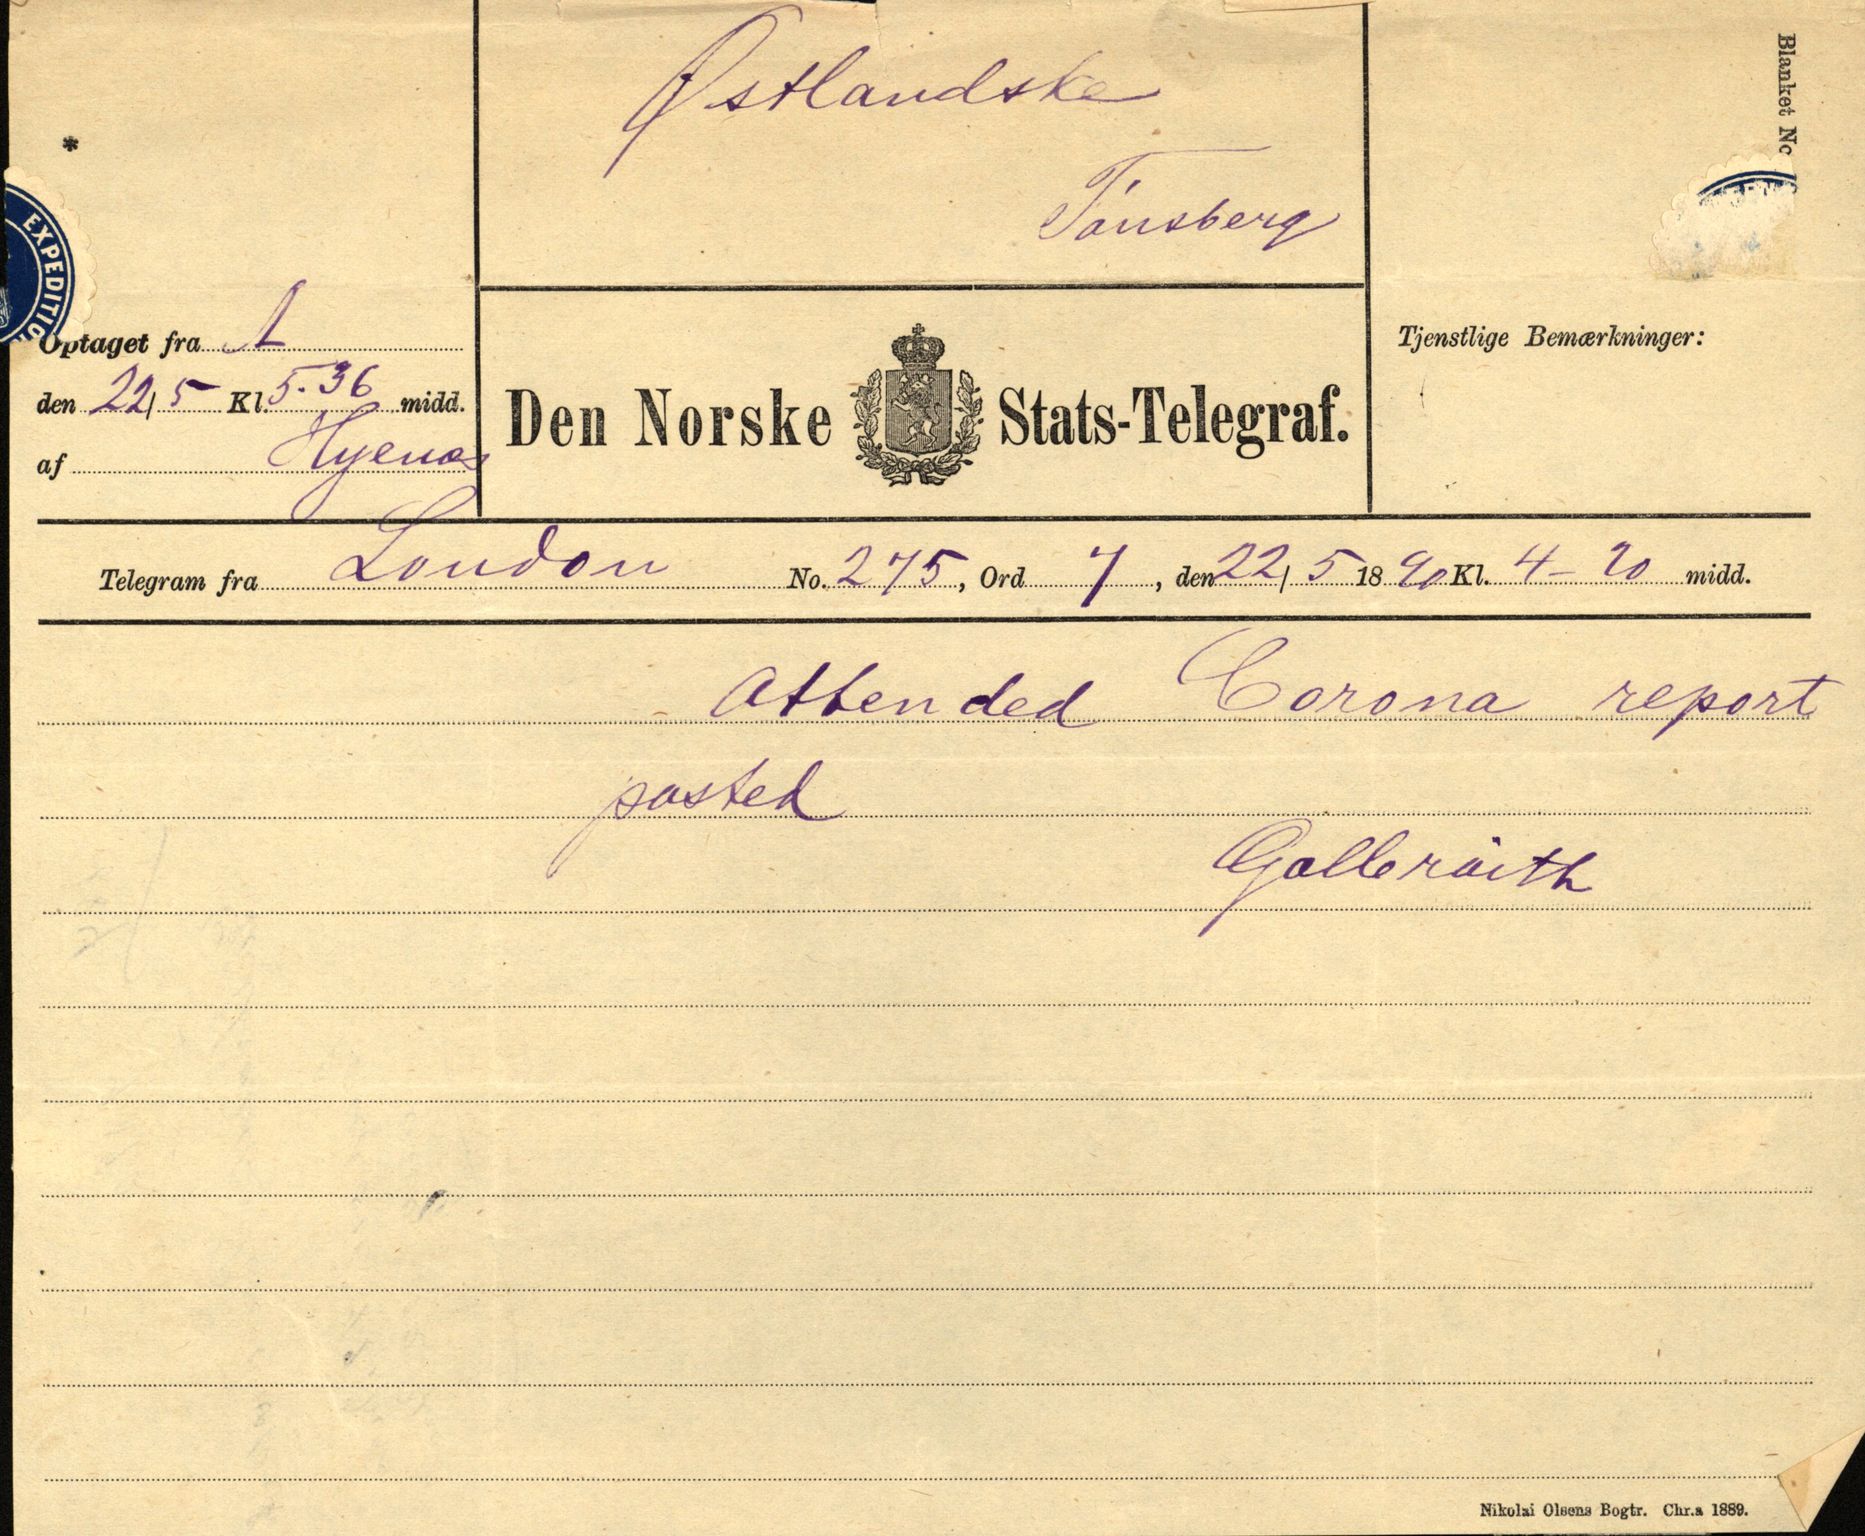 Østlandske
Tönsberg
Blanket No
*
EXPEDITIO
Optaget fra A
den 22/5 Kl. 5.36 midd.
af
Den Norske Stats-Telegraf.
Tjenstlige Bemærkninger:
Telegram fra London No. 275, Ord 7, den 22/5 1890 Kl. 4-20 midd.
Attended Corona report
posted
Nikolai Olsens Bogtr. Chr.a 1889.